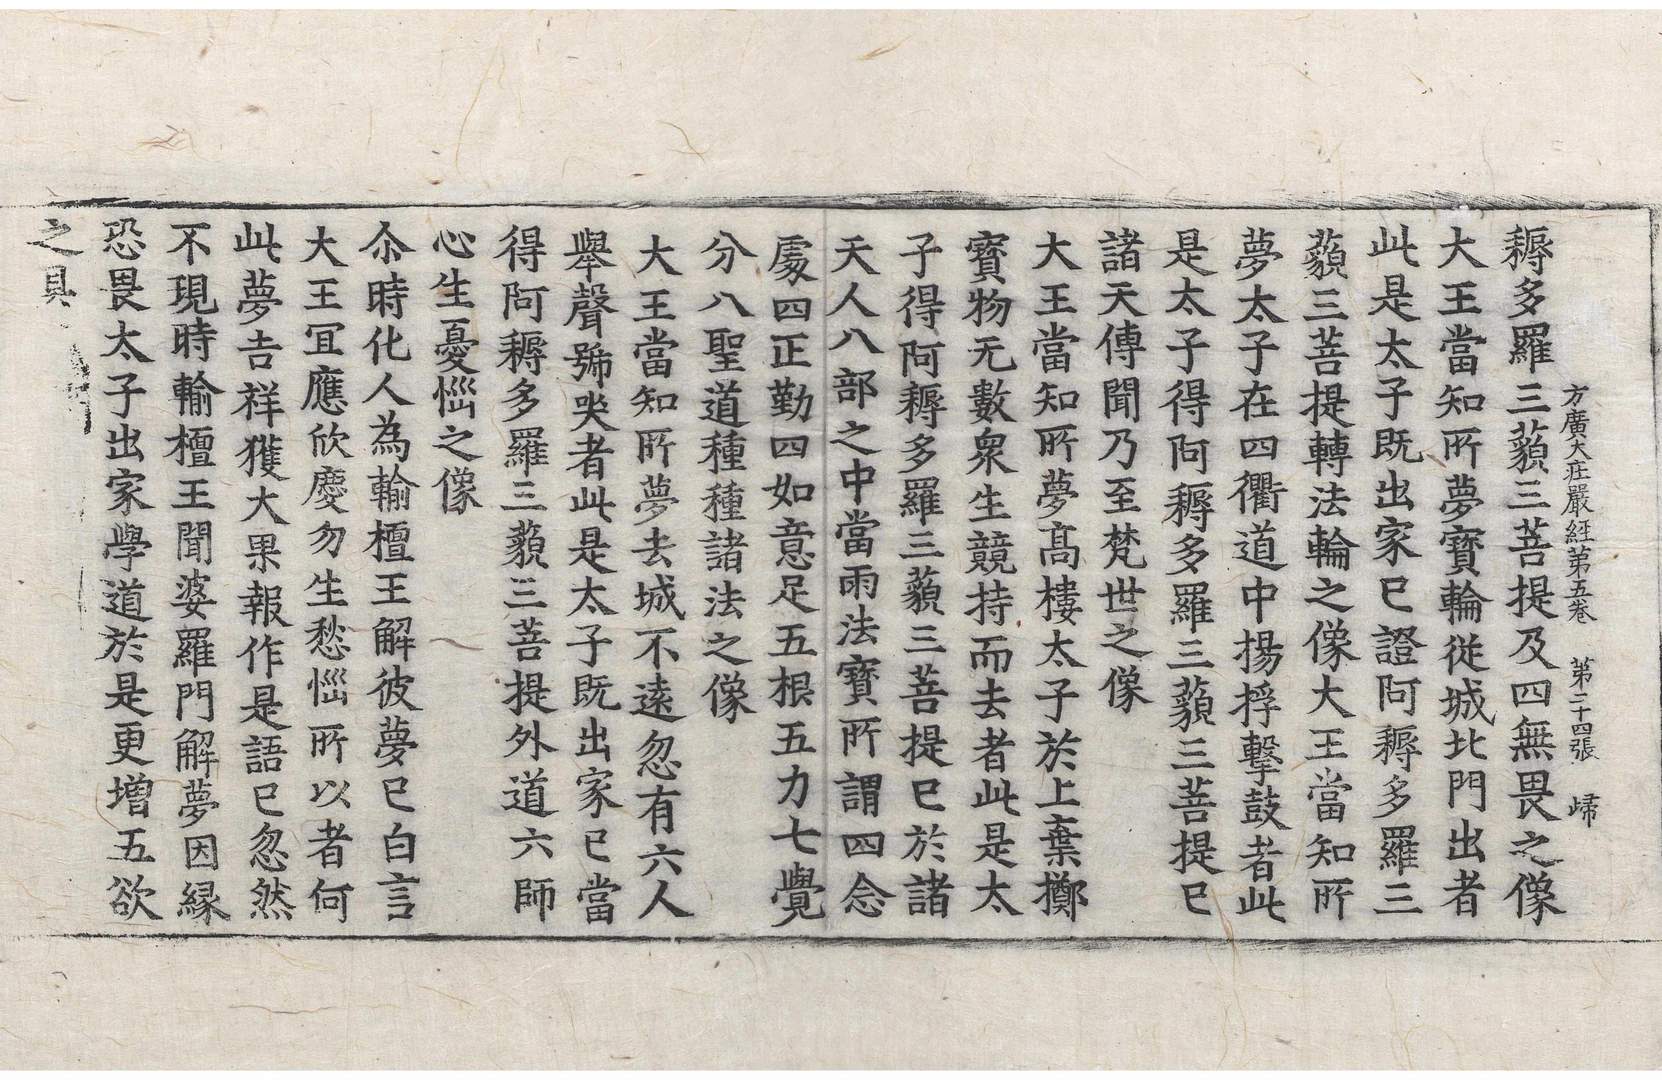 方廣大莊嚴經第五卷 第二十四張 歸
耨多羅三藐三菩提及四無畏之像
大王當知所夢寶輪從城北門出者
此是太子既出家已證阿耨多羅三
藐三菩提轉法輪之像大王當知所
夢太子在四衢道中揚捊擊鼓者此
是太子得阿耨多羅三藐三菩提已
諸天傳聞乃至梵世之像
大王當知所夢高樓太子於上棄擲
寶物无數衆生競持而去者此是太
子得阿耨多羅三藐三菩提已於諸
天人八部之中當雨法寶所謂四念
處四正勤四如意足五根五力七覺
分八聖道種種諸法之像
大王當知所夢去城不遠忽有六人
舉聲號哭者此是太子既出家已當
得阿耨多羅三藐三菩提外道六師
心生憂惱之像
尒時化人為輸檀王解彼夢已白言
大王冝應欣慶勿生愁惱所以者何
此夢吉祥獲大果報作是語已忽然
不現時輸檀王聞婆羅門解夢因緣
恐畏太子出家學道於是更增五欲
之具